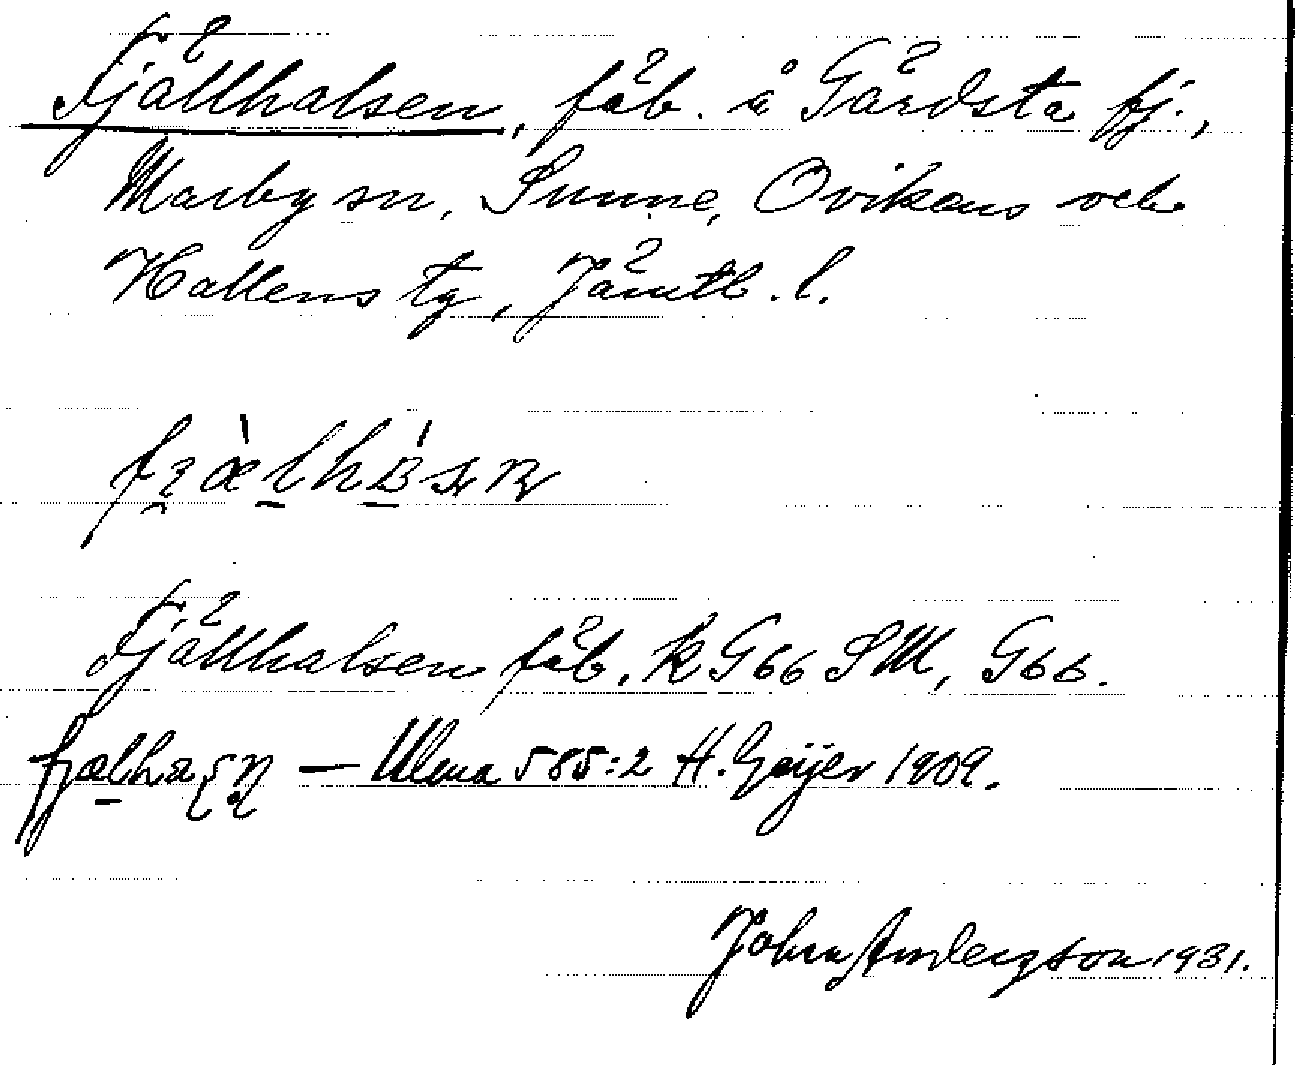 Fjällhalsen, fäb. å Gärdsta fj.,
Marby sn, Sunne, Ovikens och
Hallens tg, Jämtl. l.
Fjällhalsen fäb. k G66 SM, G66.
— Ulma 585:2 H. Geijer 1909.
John Anderzson 1931.